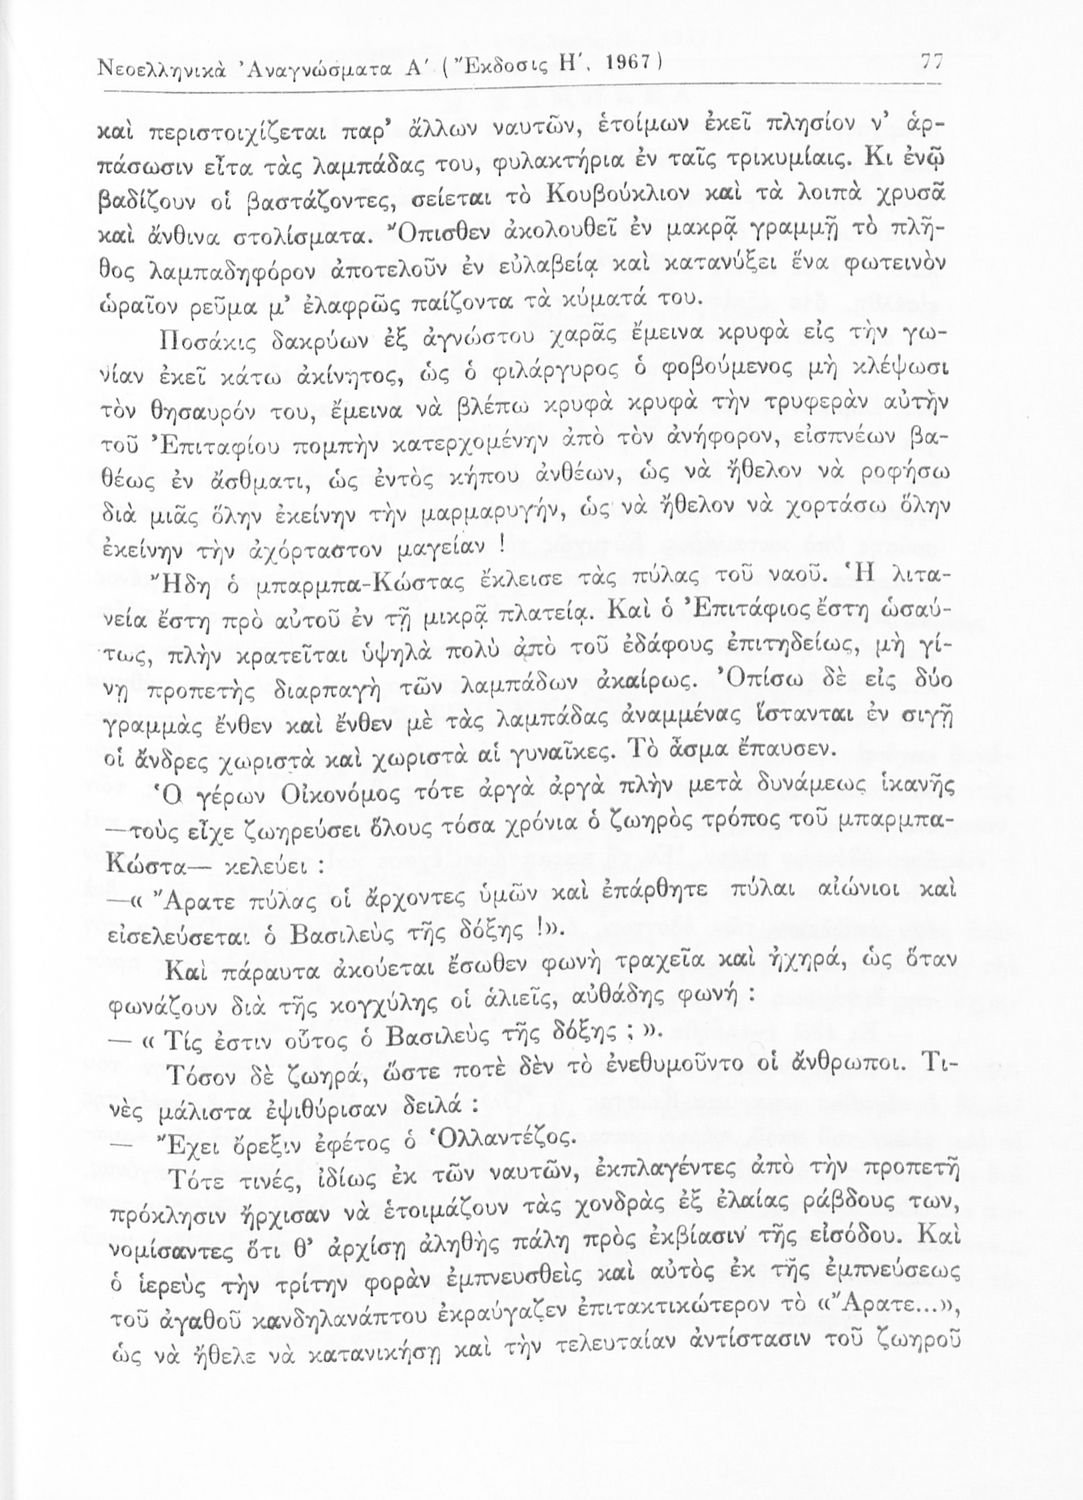 Νεοελληνικὰ Ἀναγνώσματα Α΄ (Ἔκδοσις Η΄. 1967) 77
καὶ περιστοιχίζεται παρ’ ἄλλων ναυτῶν, ἑτοίμων ἐκεῖ πλησίον ν’ ἁρ-
πάσωσιν εἶτα τὰς λαμπάδας του, φυλακτήρια ἐν ταῖς τρικυμίαις. Κι ἐνῷ
βαδίζουν οἱ βαστάζοντες, σείεται τὸ Κουβούκλιον καὶ τὰ λοιπὰ χρυσᾶ
καὶ ἄνθινα στολίσματα. Ὄπισθεν ἀκολουθεῖ ἐν μακρᾷ γραμμῇ τὸ πλῆ-
θος λαμπαδηφόρον ἀποτελοῦν ἐν εὐλαβείᾳ καὶ κατανύξει ἕνα φωτεινὸν
ὡραῖον ρεῦμα μ’ ἐλαφρῶς παίζοντα τὰ κύματά του.
Ποσάκις δακρύων ἐξ ἀγνώστου χαρᾶς ἔμεινα κρυφὰ εἰς τὴν γω-
νίαν ἐκεῖ κάτω ἀκίνητος, ὡς ὁ φιλάργυρος ὁ φοβούμενος μὴ κλέψωσι
τὸν θησαυρόν του, ἔμεινα νὰ βλέπω κρυφὰ κρυφὰ τὴν τρυφερὰν αὐτὴν
τοῦ Ἐπιταφίου πομπὴν κατερχομένην ἀπὸ τὸν ἀνήφορον, εἰσπνέων βα-
θέως ἐν ἄσθματι, ὡς ἐντὸς κήπου ἀνθέων, ὡς νὰ ἤθελον νὰ ροφήσω
διὰ μιᾶς ὅλην ἐκείνην τὴν μαρμαρυγήν, ὡς νὰ ἤθελον νὰ χορτάσω ὅλην
ἐκείνην τὴν ἀχόρταστον μαγείαν !
Ἤδη ὁ μπαρμπα-Κώστας ἔκλεισε τὰς πύλας τοῦ ναοῦ. Ἡ λιτα-
νεία ἔστη πρὸ αὐτοῦ ἐν τῇ μικρᾷ πλατείᾳ. Καὶ ὁ Ἐπιτάφιος ἔστη ὡσαύ-
τως, πλὴν κρατεῖται ὑψηλὰ πολὺ ἀπὸ τοῦ ἐδάφους ἐπιτηδείως, μὴ γί-
νῃ προπετὴς διαρπαγὴ τῶν λαμπάδων ἀκαίρως. Ὀπίσω δὲ εἰς δύο
γραμμὰς ἔνθεν καὶ ἔνθεν μὲ τὰς λαμπάδας ἀναμμένας ἵστανται ἐν σιγῇ
οἱ ἄνδρες χωριστὰ καὶ χωριστὰ αἱ γυναῖκες. Τὸ ἆσμα ἔπαυσεν.
Ὁ γέρων Οἰκονόμος τότε ἀργὰ ἀργὰ πλὴν μετὰ δυνάμεως ἱκανῆς
—τοὺς εἶχε ζωηρεύσει ὅλους τόσα χρόνια ὁ ζωηρὸς τρόπος τοῦ μπαρμπα-
Κώστα— κελεύει :
—« Ἄρατε πύλας οἱ ἄρχοντες ὑμῶν καὶ ἐπάρθητε πύλαι αἰώνιοι καὶ
εἰσελεύσεται ὁ Βασιλεὺς τῆς δόξης !».
Καὶ πάραυτα ἀκούεται ἔσωθεν φωνὴ τραχεῖα καὶ ἠχηρά, ὡς ὅταν
φωνάζουν διὰ τῆς κογχύλης οἱ ἁλιεῖς, αὐθάδης φωνή :
— « Τίς ἐστιν οὗτος ὁ Βασιλεὺς τῆς δόξης ; ».
Τόσον δὲ ζωηρά, ὥστε ποτὲ δὲν τὸ ἐνεθυμοῦντο οἱ ἄνθρωποι. Τι-
νὲς μάλιστα ἐψιθύρισαν δειλά :
— Ἔχει ὄρεξιν ἐφέτος ὁ Ὁλλαντέζος.
Τότε τινές, ἰδίως ἐκ τῶν ναυτῶν, ἐκπλαγέντες ἀπὸ τὴν προπετῆ
πρόκλησιν ἤρχισαν νὰ ἑτοιμάζουν τὰς χονδρὰς ἐξ ἐλαίας ράβδους των,
νομίσαντες ὅτι θ’ ἀρχίσῃ ἀληθὴς πάλη πρὸς ἐκβίασιν τῆς εἰσόδου. Καὶ
ὁ ἱερεὺς τὴν τρίτην φορὰν ἐμπνευσθεὶς καὶ αὐτὸς ἐκ τῆς ἐμπνεύσεως
τοῦ ἀγαθοῦ κανδηλανάπτου ἐκραύγαζεν ἐπιτακτικώτερον τὸ «Ἄρατε...»,
ὡς νὰ ἤθελε νὰ κατανικήσῃ καὶ τὴν τελευταίαν ἀντίστασιν τοῦ ζωηροῦ